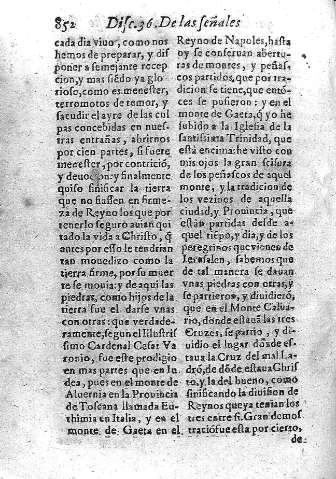 852 Disc. 36. De las señales
cada dia viuo, como nos
hemos de preparar, y dis
poner a semejante recep
cion, y mas siẽdo ya glo-
rioso, como es menester,
terromotos de temor, y
sacudir el ayre de las cul
pas concebidas en nues-
tras entrañas, abrirnos
por cien partes, si fuere
menester, por contriciõ,
y deuocion: y finalmente
quiso sinificar la tierra
que no fiassen en firme-
za de Reyno los que por
tenerlo seguro auian qui
tado la vida a Christo, q̃
antes por esso le tendrian
tan mouedizo como la
tierra firme, por su muer
te se mouia: y de aqui las
piedras, como hijos de la
tierra fue el darse vnas
con otras: que verdade-
ramente, segun el Illustris
simo Cardenal Cesar Va
ronio, fue este prodigio
en mas partes que en Iu
dea, pues en el monte de
Aluernia en la Prouincia
de Toscana llamada Eu-
thimia en Italia, y en el
monte de Gaeta en el
Reyno de Napoles, hasta
oy se conseruan abertu-
ras de montes, y peñas-
cos partidos, que por tra-
dicion se tiene, que entõ-
ces se pusieron: y en el
monte de Gaeta, q̃ yo he
subido a la Iglesia de la
santissima Trinidad, que
està encima, he visto con
mis ojos la gran scisura
de los peñascos de aquel
monte, y la tradicion de
los vezinos de aquella
ciudad, y Prouincia, que
estan partidas desde a-
quel tiẽpo, y dia, y de los
peregrinos que vienen de
Jerusalen, sabemos que
de tal manera se dauan
vnas piedras con otras, y
se partieron, y diuidieró,
que en el Monte Calua-
rio, donde estauã las tres
Cruzes, se partio, y di-
uidio el lugar dõde es-
taua la Cruz del mal La-
drõ, de dõde estaua Chris
to, y la del bueno, como
sinificando la diuision de
Reynos que ya tenian los
tres entre si. Gran demos
tracion fue esta por cierto,
de